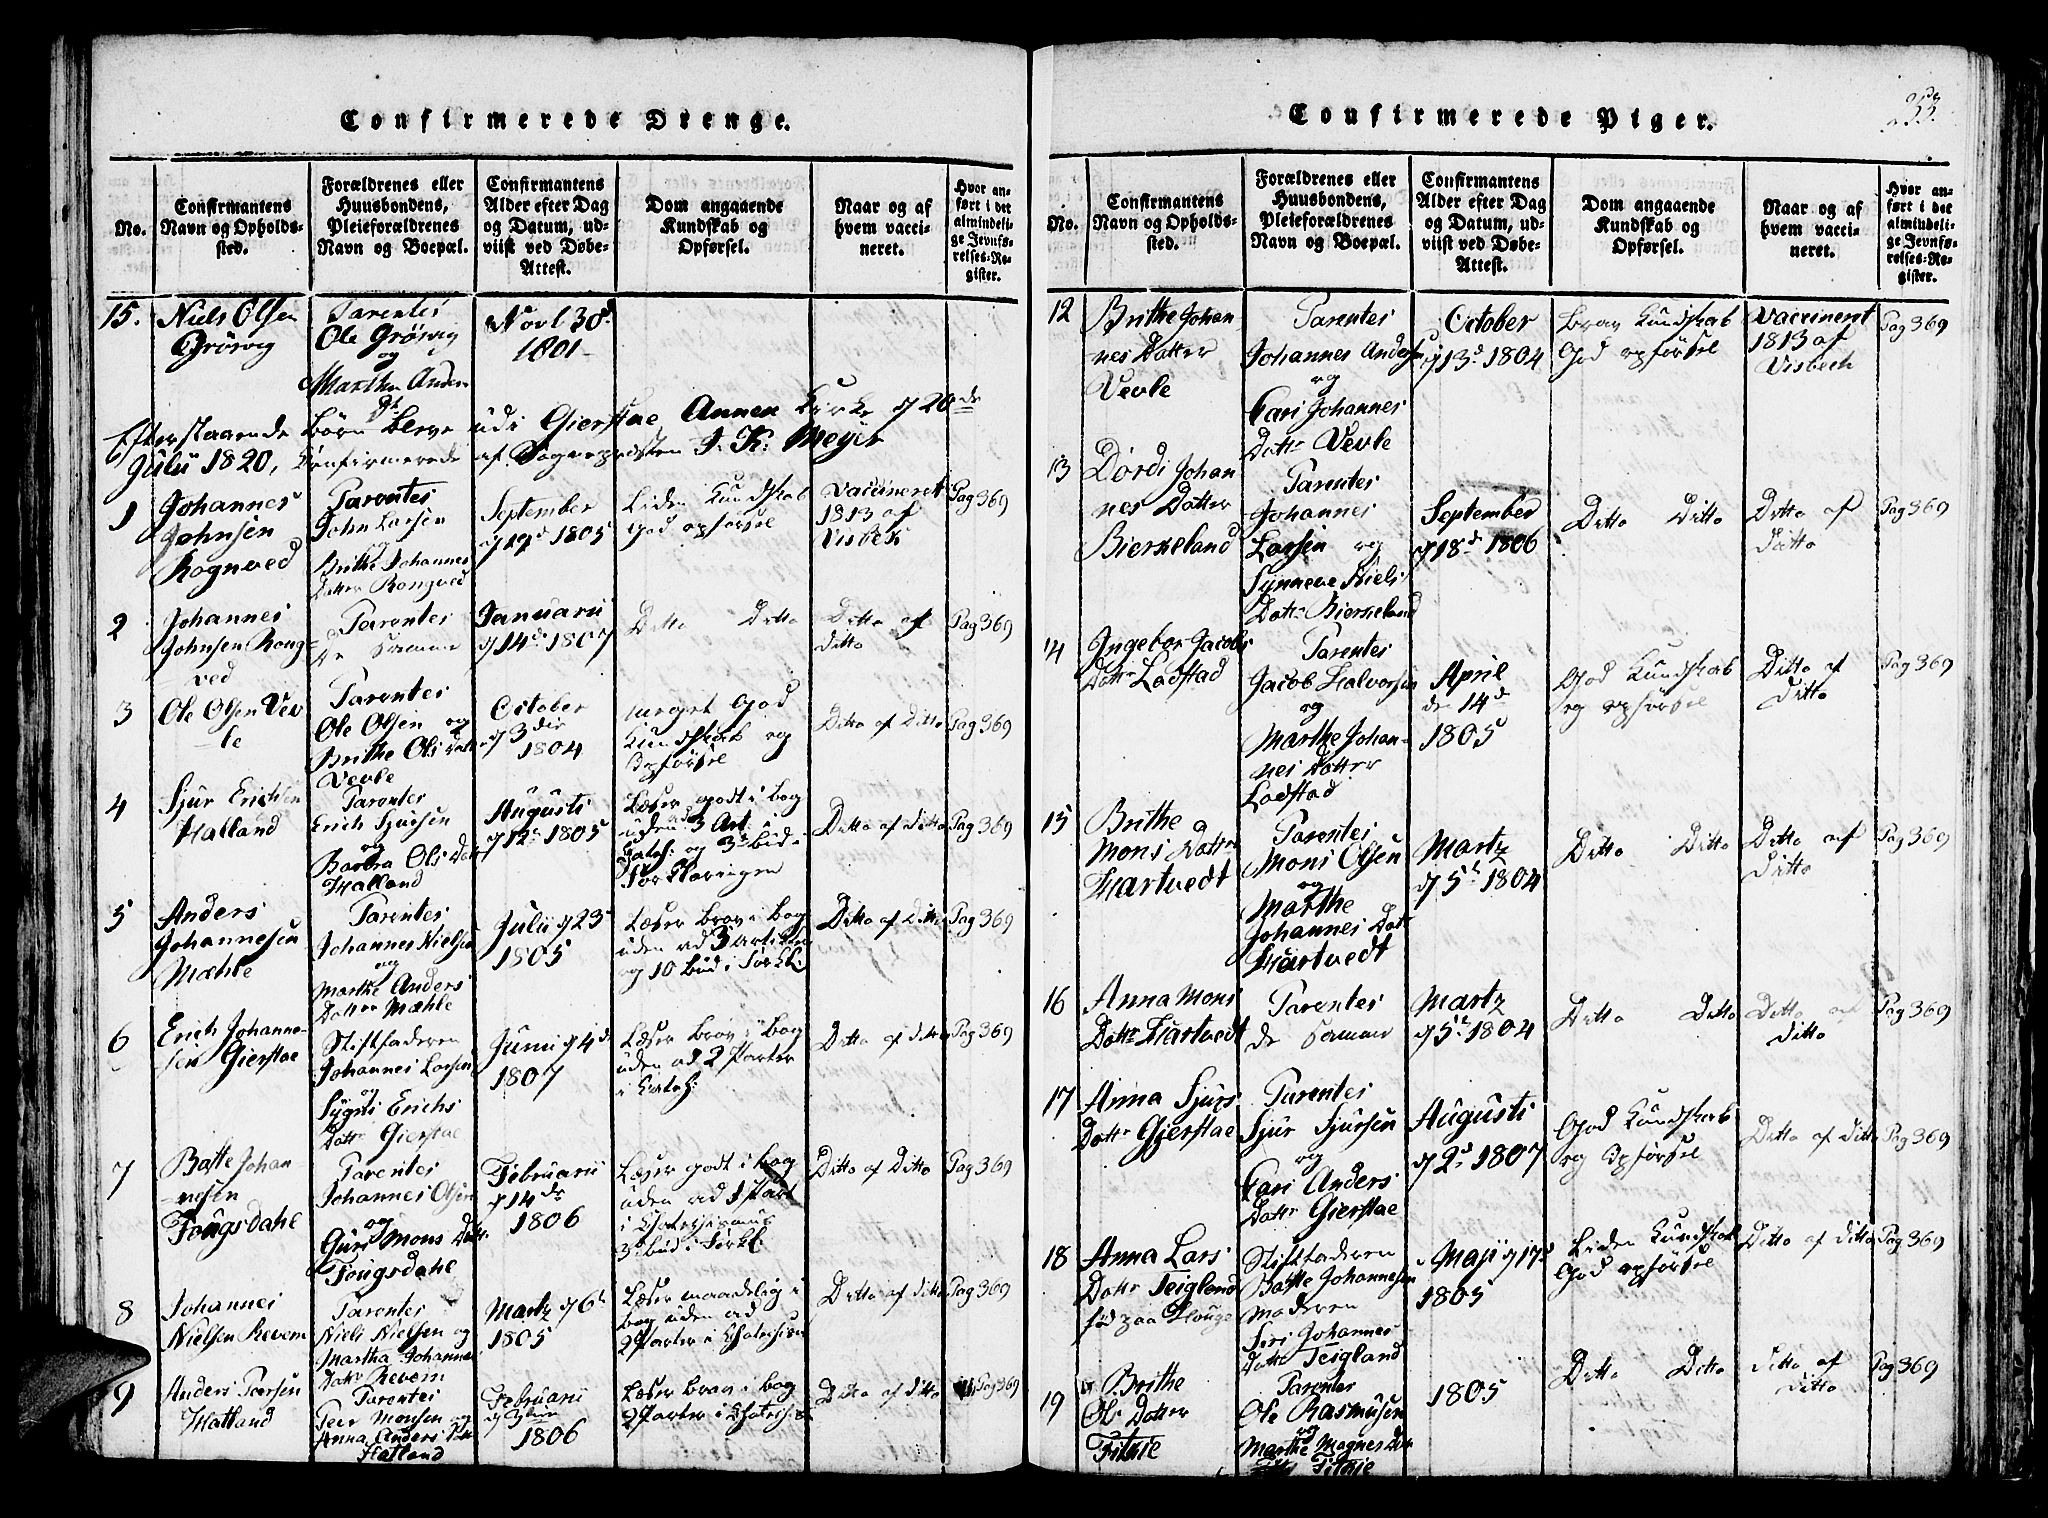 Confirmerede Drenge.
No.
Confirmantens
Navn og Opholds-
sted.
Forældrenes eller
Huusbondens,
Pleieforældrenes
Navn og Boepæl.
Confirmantens
Alder efter Dag
og Datum, ud-
viist ved Døbe-
Attest.
Dom angaaende
Kundskab og
Opførsel.
Naar og af
hvem vacci-
neret.
Hvor an-
ført i det
almindeli-
ge Jevnfø-
relses-Re-
gister.
15.
Niels Olsen
Grøsvig
Parentes
Ole Grøsvig
og
Martha Anders
Novl 30
1801
Efterstaaende Børn bleve udi Gierstae Annex Kirke d 20de
Julii 1820, Confirmerede af Sognepræsten J. K: Meyer
1
Johannes
Johnsen
Rognved
Parentes
John Larsen
og
Brithe Johannes
Datter Rongved
September
d 19d 1805
Liden Kundskab
God opførsel
Vaccineret
1813 af
Visbek
Pag 369
2
Johannes
Johnsen Rong-
ved
Parentes
De Samme
Januarii
d 14d 1807
Ditto Ditto
Ditto af
ditto
Pag 369
3
Ole Olsen Vev
le
Parentes
Ole Olsen og
Brithe Ols Datter
Vevle
October
d 3die
1804
Meget God
Kundskab og
Opførsel
Ditto af Ditto
Pag 369
4
Sjur Erichsen
Hatland
Parentes
Erich Sjursen
og
Barbra Ols Datt
Hatland
Augusti
d 12 1805
Læser godt i bog
uden ad 3 Art. i
Catech: og 3d bud i
Forklaringen
Ditto af ditto
Pag 369
5
Anders
Johannesen
Mæhle
Parentes
Johannes Nielsen
og
Marthe Anders
Datter Mæhle
Julii d 23
1805
Læser brav i bog
uden ad 3 artikler
og 10 bud i Forkl:
Ditto af Ditto
Pag 369
6
Erich Johanne-
sen Gierstae
Stiffaderen
Johannes Larsen
og
Sygni Erichs
Dattr Gierstae
Junii d 4d
1807
Læser brav i bog
uden ad 2 Parter
i Catech:
Ditto af ditto
Pag 369
7
Botte Johan-
nesen
Fougsdahl
Parentes
Johannes Olsen
og
Guri Mons Dattr
Fougsdahl
Februarii
d 14de
1806
Læser godt i bog
uden ad 1 Part
i Chatechismus
3d bud i Forkl
Ditto af Ditto
Pag 369
8
Johannes
Nielsen Revem
Parentes
Niels Nielsen og
Martha Johannes
Dattr Revem
Martz d 6t
1805
Læser maadelig i
bog uden ad
2 Parter i Chatechism
Ditto af ditto
Pag 369
9
Anders Peersen
Hatland
Parentes
Peer Monsen og
Anna Anders Datt
Hatland
Februarii
d 3die
1806
Læser brav i bog
2 Parter i Chatechis
Ditto af ditto
Pag 369
Confirmerede Piger.
253
No.
Confirmantens
Navn og Opholds-
sted.
Forældrenes eller
Huusbondens,
Pleieforældrenes
Navn og Boepæl.
Confirmantens
Alder efter Dag
og Datum, ud-
viist ved Døbe-
Attest.
Dom angaaende
Kundskab og
Opførsel.
Naar og af
hvem vacci-
neret.
Hvor an-
ført i det
almindeli-
ge Jevnfø-
relses-Re-
gister.
12
Brithe Johan
nes Datter
Vevle
Parentes
Johannes Andersen
og
Cari Johannes
Dattr Vevle
October
d 13d 1804
Brav Kundskab
God opførsel
Vaccineret
1813 af
Visbech
Pag 369
13
Dørdi Johan
nes Datter
Bierkeland
Parentes
Johannes
Larsen og
Synneve Niels
Dattr Bierkeland
September
d 18d 1806
Ditto Ditto
Ditto af
Ditto
Pag 369
14
Ingebor Jacobs
Dattr Ladstad
Parentes
Jacob Halvorsen
og
Marthe Johan-
nes Datter
Ladstad
April
den 14d
1805
God Kundskab
og opførsel
Ditto af
Ditto
Pag 369
15
Brithe
Mons Datter
Hartvedt
Parentes
Mons Olsen
og
Marthe
Johannes Datt
Hartvedt
Martz
d 5t 1804
Ditto Ditto
Ditto af
Ditto
Pag 369
16
Anna Mons
Dattr Hartvedt
Parentes
de samme
Martz
d 5t 1804
Ditto Ditto
Ditto af
ditto
Pag 369
17
Anna Sjurs
Dattr Gjerstae
Parentes
Sjur Sjursen
og
Cari Anders
Dattr Gierstae
Augusti
d 2d 1807
God Kundskab
og Opførsel
Ditto af ditto
Pag 369
18
Anna Lars
Dattr Teigland
fød paa Houge
Stiffaderen
Botte Johannesen
Moderen
Siri Johannes
Dattr Teigland
Maji d 17d
1805
Liden Kundskab
God opførsel
Ditto af ditto
Pag 369
19
Brithe
Ols Datter
Fitie
Parentes
Ole Rasmusen
og
Marthe Magnes Dattr
Fitie
1805
Ditto Ditto
Ditto af
ditto
Pag 369